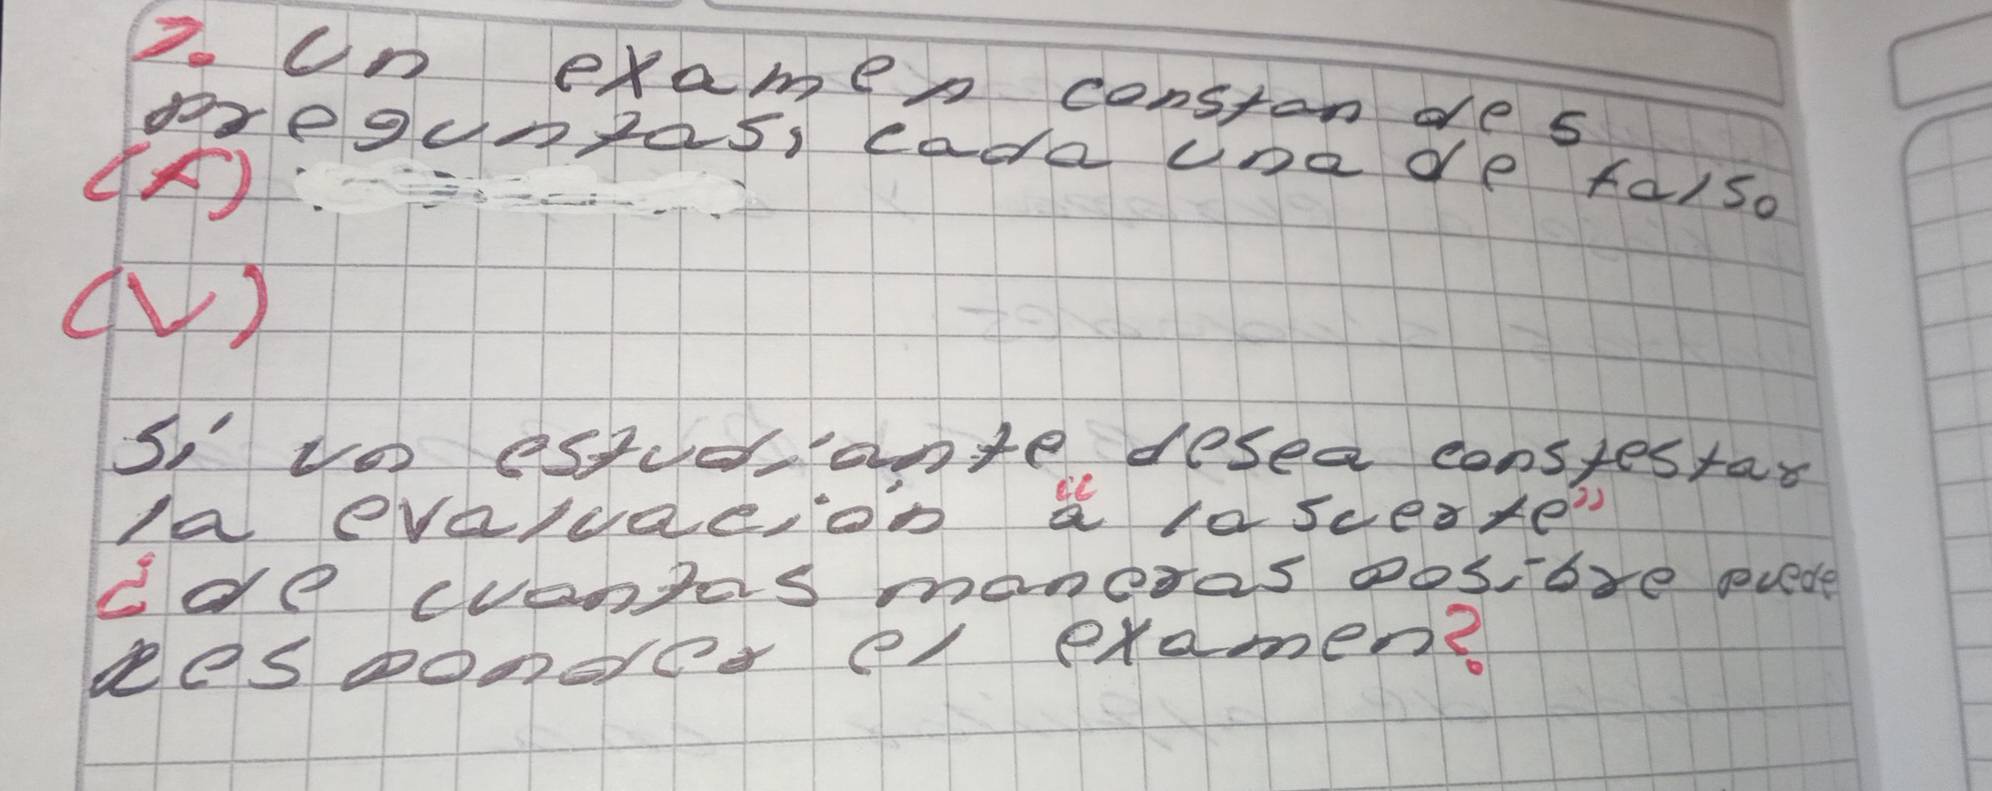 2. Un examen constan de 5
preguntas, cada una de falso
(F)
(V)
Si un estudiante desea constestar
la evaluación "a la suerte"
¿de cuantas maneras posibre puede
responder el examen?